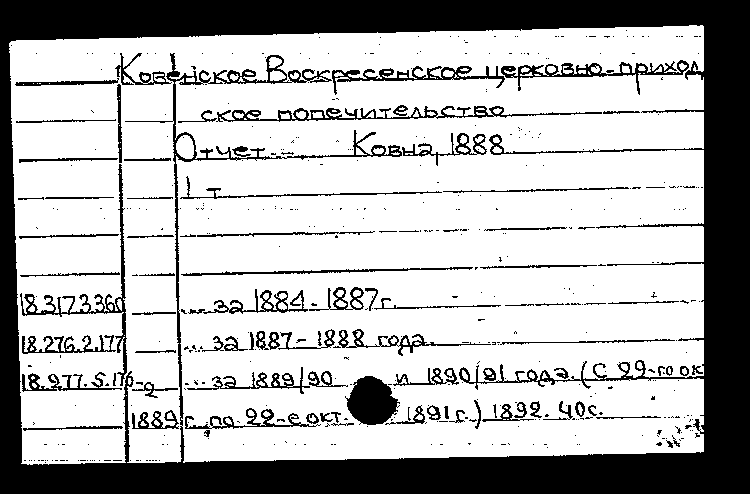 Ковенское Воскресенское церковно-приход
ское попечительство
Отчет... Ковна, 1888
1 т
18.317.3.360 ... за 1884-1887г.
18.276.2.177 ... за 1887-1888 года.
18.277.5.176-а ... за 1889/90 и 1890/91 года. (С 29-го ок
1889 г. по 22-е окт. 1891 г.) 1892. 40с.